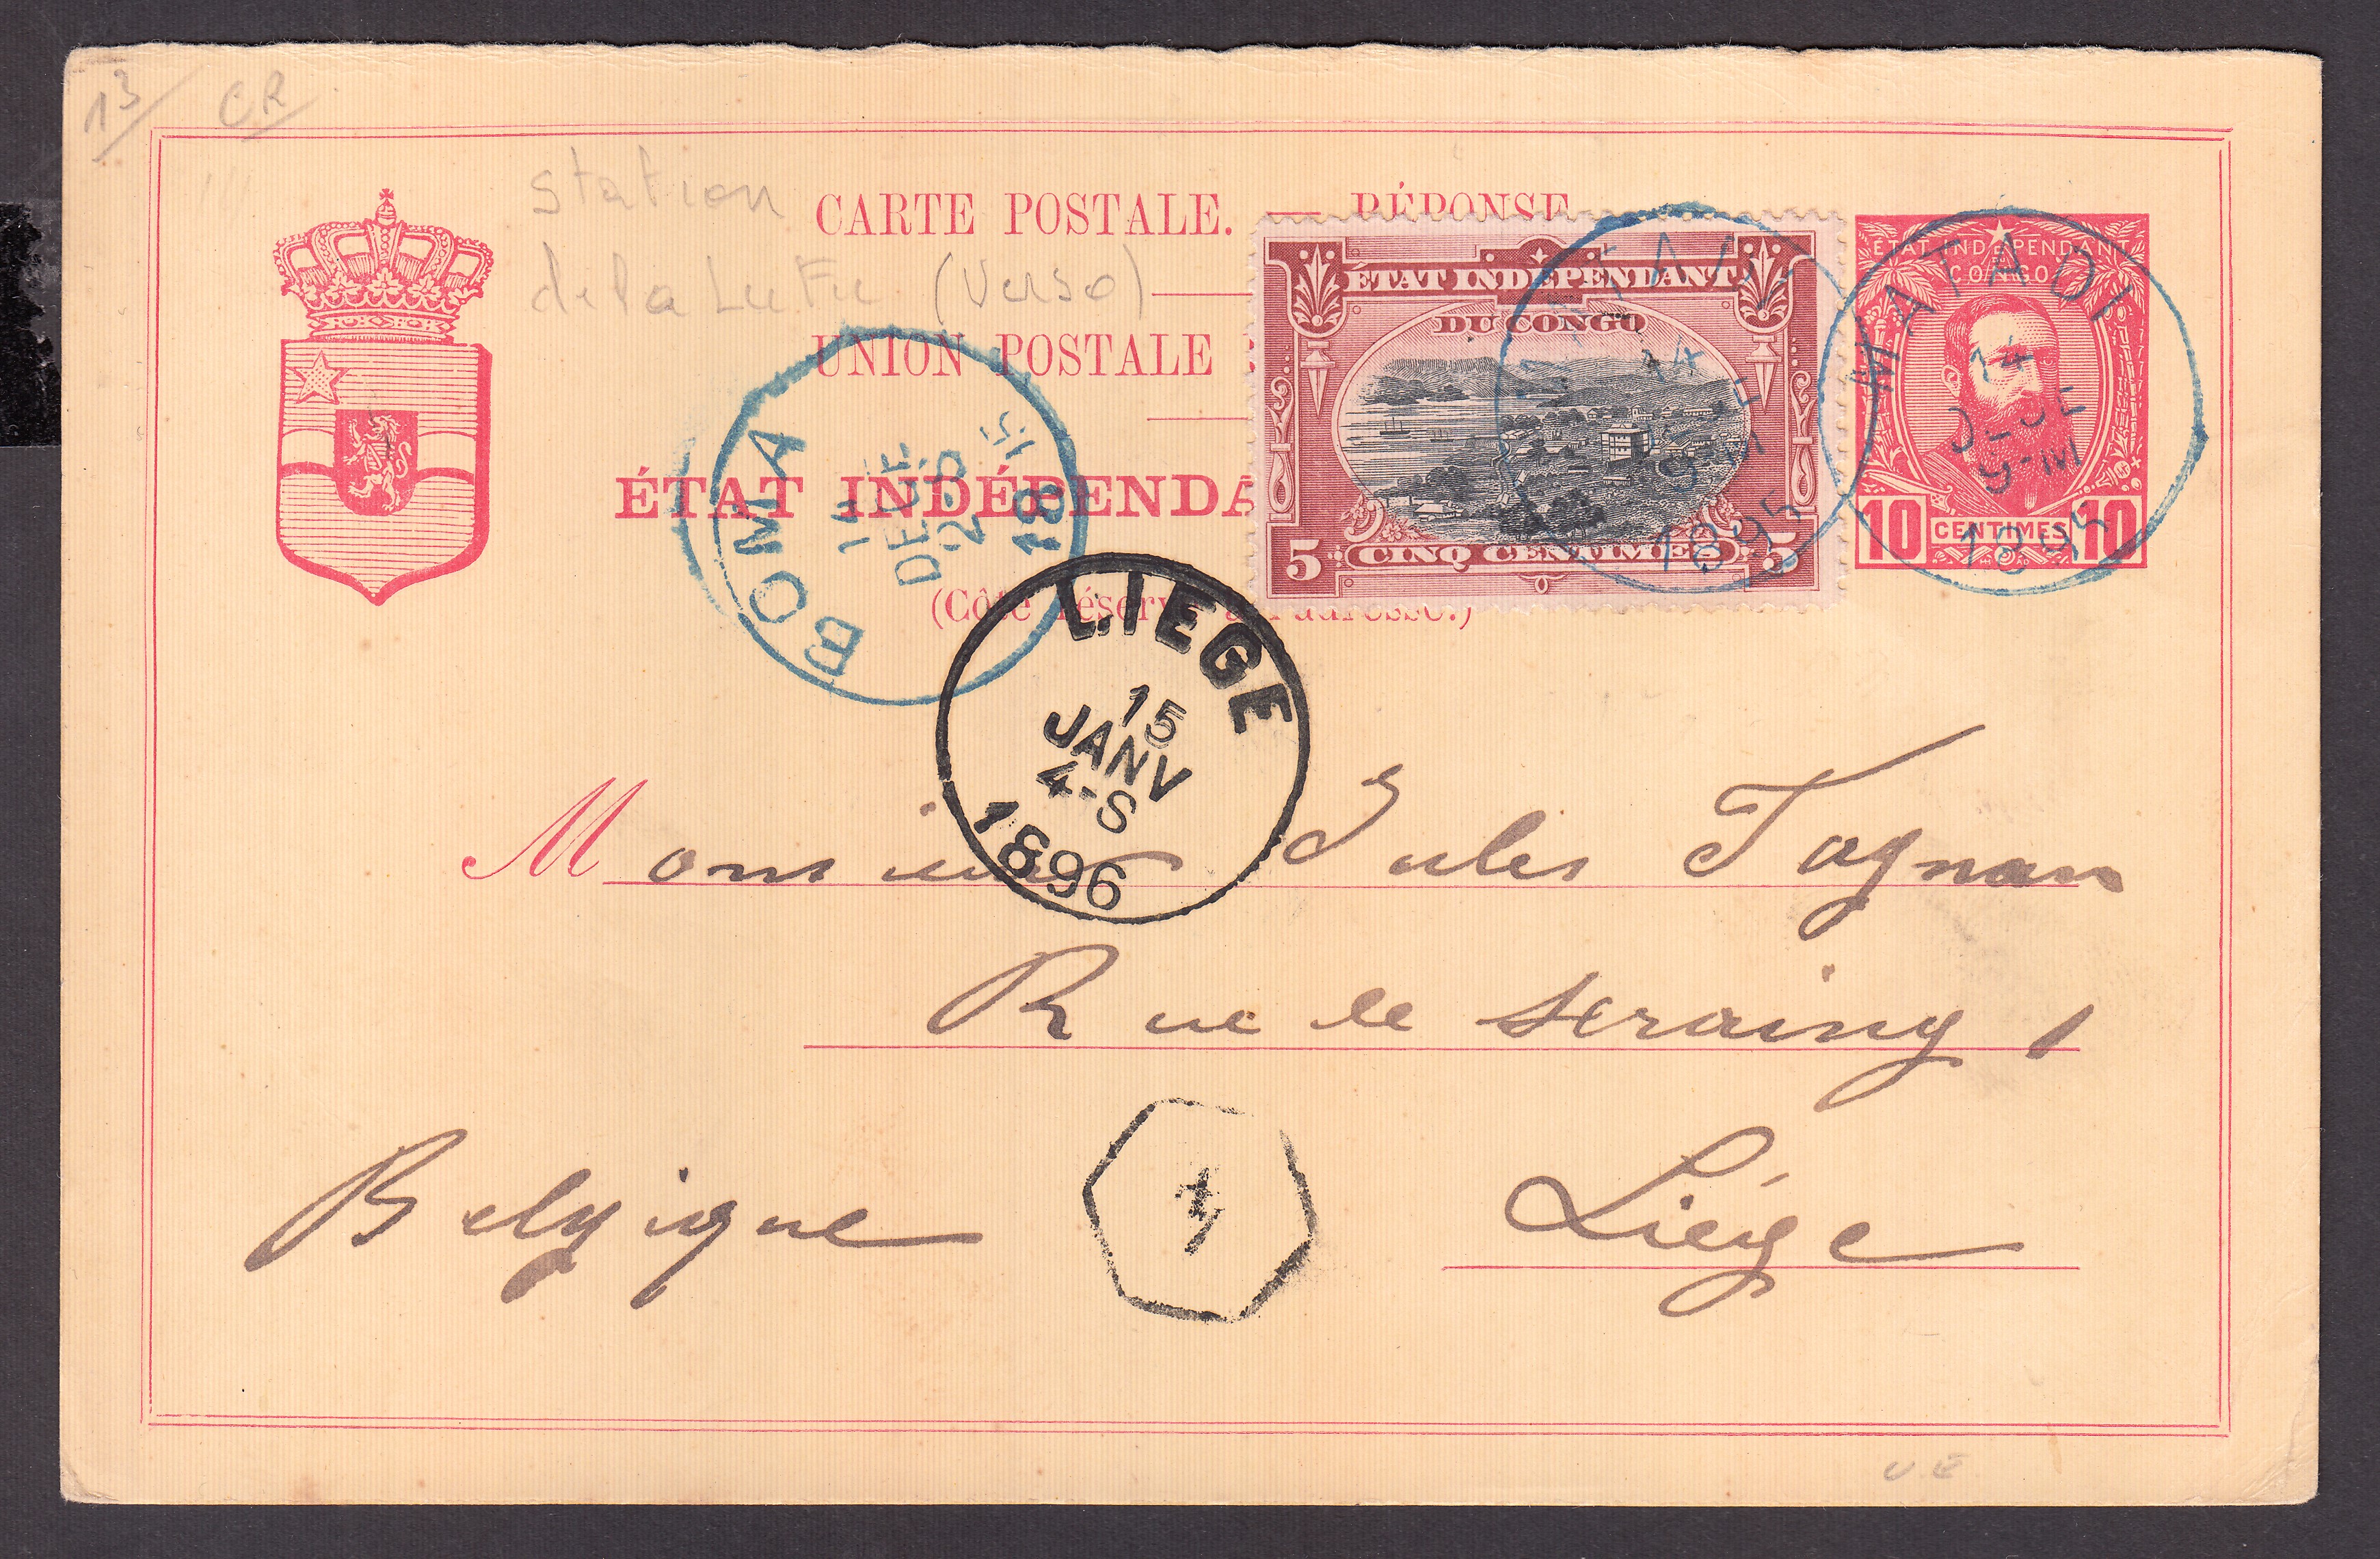 13/ CR
station
de la Lufu (Verso)
CARTE POSTALE. — RÉPONSE
UNION POSTALE
ÉTAT INDÉPENDA
(Côté réservé à l'adresse.)
ÉTAT INDÉPENDANT
DU CONGO
5 CINQ CENTIMES 5
ÉTAT INDÉPENDANT
CONGO
10 CENTIMES 10
MATADI
14
DECE
9-M
1895
MATADI
14
DECE
9-M
1895
BOMA
14
DECE
2-S
1895
LIEGE
15
JANV
4-S
1896
Monsieur Jules Tagnan
Rue de Seraing 1
Belgique
Liége
V.E